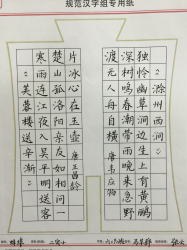 规范汉字组专用纸
滁州西涧
独怜幽草涧边生上有黄鹂
深树鸣春潮带雨晚来急野
渡无人舟自横 唐韦应物
芙蓉楼送辛渐
寒雨连江夜入吴平明送客
楚山孤洛阳亲友如相问一
片冰心在玉壶 唐王昌龄